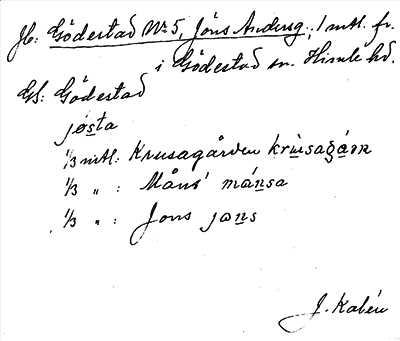 Jb: Gödestad Nr 5, Jöns Andersg., 1 mtl. fr.
i Gödestad sn. Himle hd.
Gb: Gödestad
jøsta
1/3 mtl: Krusagården krùsagá̱rn
1/3 " : Måns' má̱nsa
1/3 " : Jons jɷns
J. Kalén